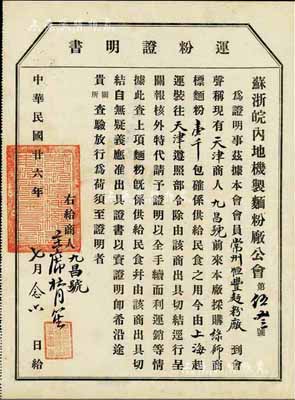 運粉證明書
蘇浙皖內地機製麵粉廠公會 第 伍 號
為證明事茲據本會會員常州恒豐麵粉廠 到會
聲稱現有天津商人九昌號前來本廠採購綠師商
標麵粉壹千包確係供給民食之用今由上海起
運裝往天津遵照部令除由該商出具切結逕行呈
關報核外特代請予證明以全手續而利運銷等情
據此查上項麵粉既係供給民食并由該商出具切
結自無疑義應准出具證書以資證明即希沿途
貴關所查驗放行為荷須至證明者
右給商人九昌號
主席
中華民國廿六年 七月 念 日給